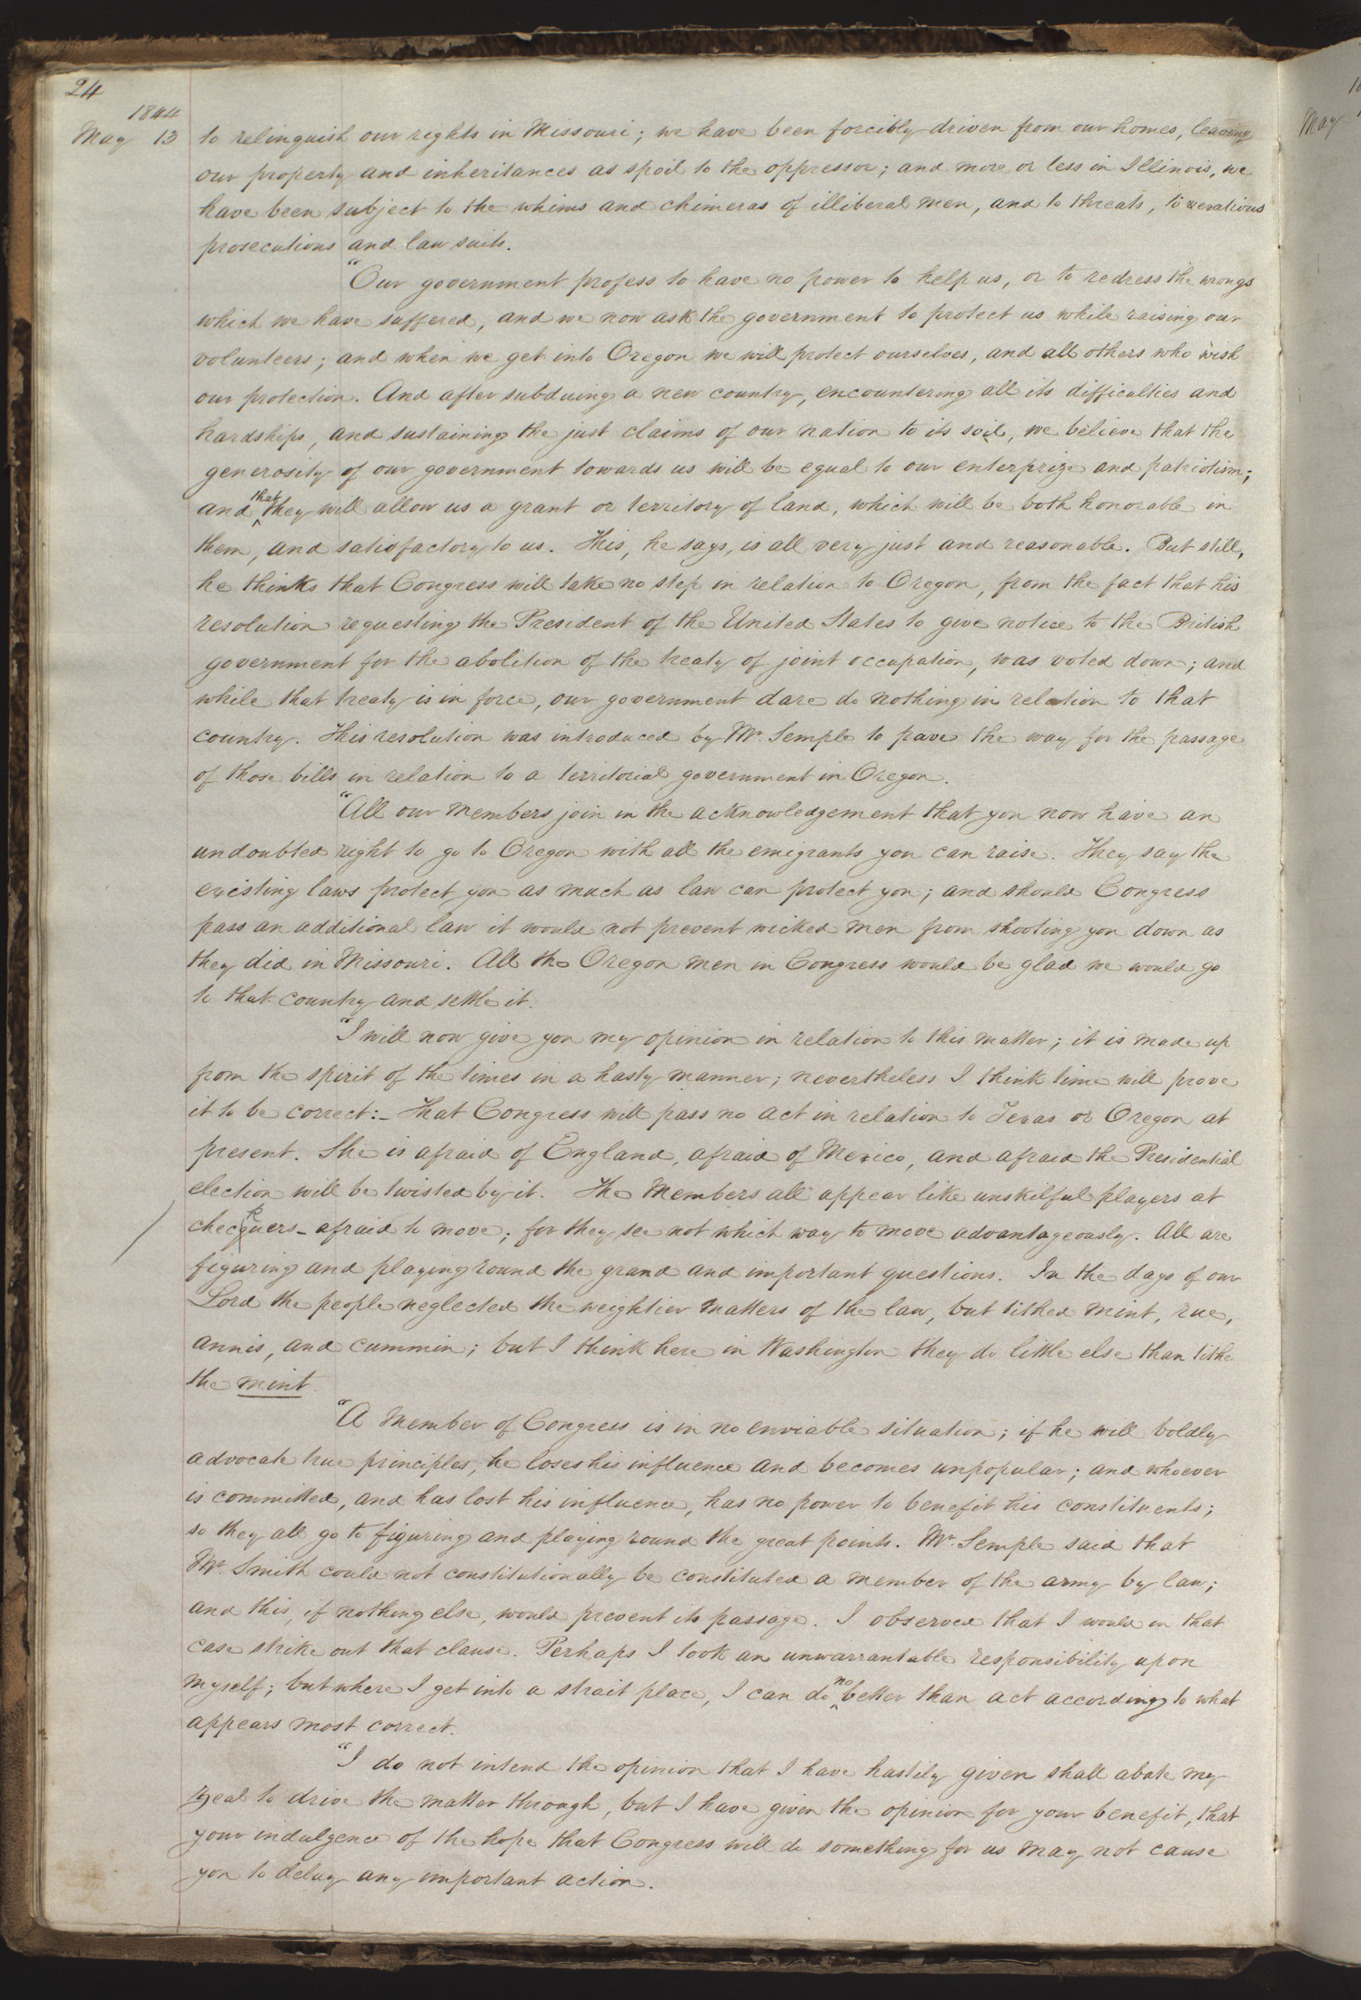 24
1844
May 13 to relinquish our rights in Missouri; we have been forcibly driven from our homes, leaving
our property and inheritances as spoil to the oppressor; and more or less in Illinois, we
have been subject to the whims and chimeras of illiberal men, and to threats, to vexatious
prosecutions and law suits.
"Our government profess to have no power to help us, or to redress the wrongs
which we have suffered, and we now ask the government to protect us while raising our
volunteers; and when we get into Oregon we will protect ourselves, and all others who wish
our protection. And after subduing a new country, encountering all its difficulties and
hardships, and sustaining the just claims of our nation to its soil, we believe that the
generosity of our government towards us will be equal to our enterprize and patriotism;
and that they will allow us a grant or territory of land, which will be both honorable in
them, and satisfactory to us. This, he says, is all very just and reasonable. But still,
he thinks that Congress will take no step in relation to Oregon, from the fact that his
resolution requesting the President of the United States to give notice to the British
government for the abolition of the treaty of joint occupation, was voted down; and
while that treaty is in force, our government dare do nothing in relation to that
country. This resolution was introduced by Mr. Semple to pave the way for the passage
of those bills in relation to a territorial government in Oregon.
"All our members join in the acknowledgement that you now have an
undoubted right to go to Oregon with all the emigrants you can raise. They say the
existing laws protect you as much as law can protect you; and should Congress
pass an additional law it would not prevent wicked men from shooting you down as
they did in Missouri. All the Oregon men in Congress would be glad we would go
to that country and settle it.
"I will now give you my opinion in relation to this matter; it is made up
from the spirit of the times in a hasty manner; nevertheless I think time will prove
it to be correct:- That Congress will pass no act in relation to Texas or Oregon at
present. She is afraid of England, afraid of Mexico, and afraid the Presidential
election will be twisted by it. The members all appear like unskilful players at
checquers - afraid to move; for they see not which way to move advantageously. All are
figuring and playing round the grand and important questions. In the days of our
Lord the people neglected the weightier matters of the law, but tithed mint, rue,
annis, and cummin; but I think here in Washington they do little else than tithe
the mint.
"A member of Congress is in no enviable situation; if he will boldly
advocate true principles, he loses his influence and becomes unpopular; and whoever
is committed, and has lost his influence, has no power to benefit his constituents;
so they all go to figuring and playing round the great points. Mr. Semple said that
Mr. Smith could not constitutionally be constituted a member of the army by law;
and this, if nothing else, would prevent its passage. I observed that I would in that
case strike out that clause. Perhaps I took an unwarrantable responsibility upon
myself; but where I get into a strait place, I can do no better than act according to what
appears most correct.
"I do not intend the opinion that I have hastily given shall abate my
zeal to drive the matter through, but I have given the opinion for your benefit, that
your indulgence of the hope that Congress will do something for us may not cause
you to delay any important action.
May